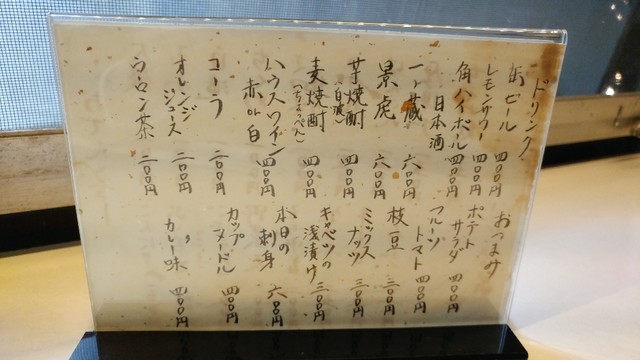 ドリンク
缶ビール 四〇〇円
レモンサワー 四〇〇円
角ハイボール 四〇〇円
日本酒
一ノ蔵 六〇〇円
景虎 六〇〇円
芋焼酎 四〇〇円
(白波)
麦焼酎 四〇〇円
ハウスワイン 四〇〇円
赤or白
コーラ 二〇〇円
オレンジ
ジュース 二〇〇円
ウーロン茶 二〇〇円
おつまみ
ポテト
サラダ 四〇〇円
フルーツ
トマト 四〇〇円
枝豆 三〇〇円
ミックス
ナッツ 三〇〇円
キャベツの
浅漬け 三〇〇円
本日の
刺身 六〇〇円
カップ
ヌードル 四〇〇円
〃
カレー味 四〇〇円